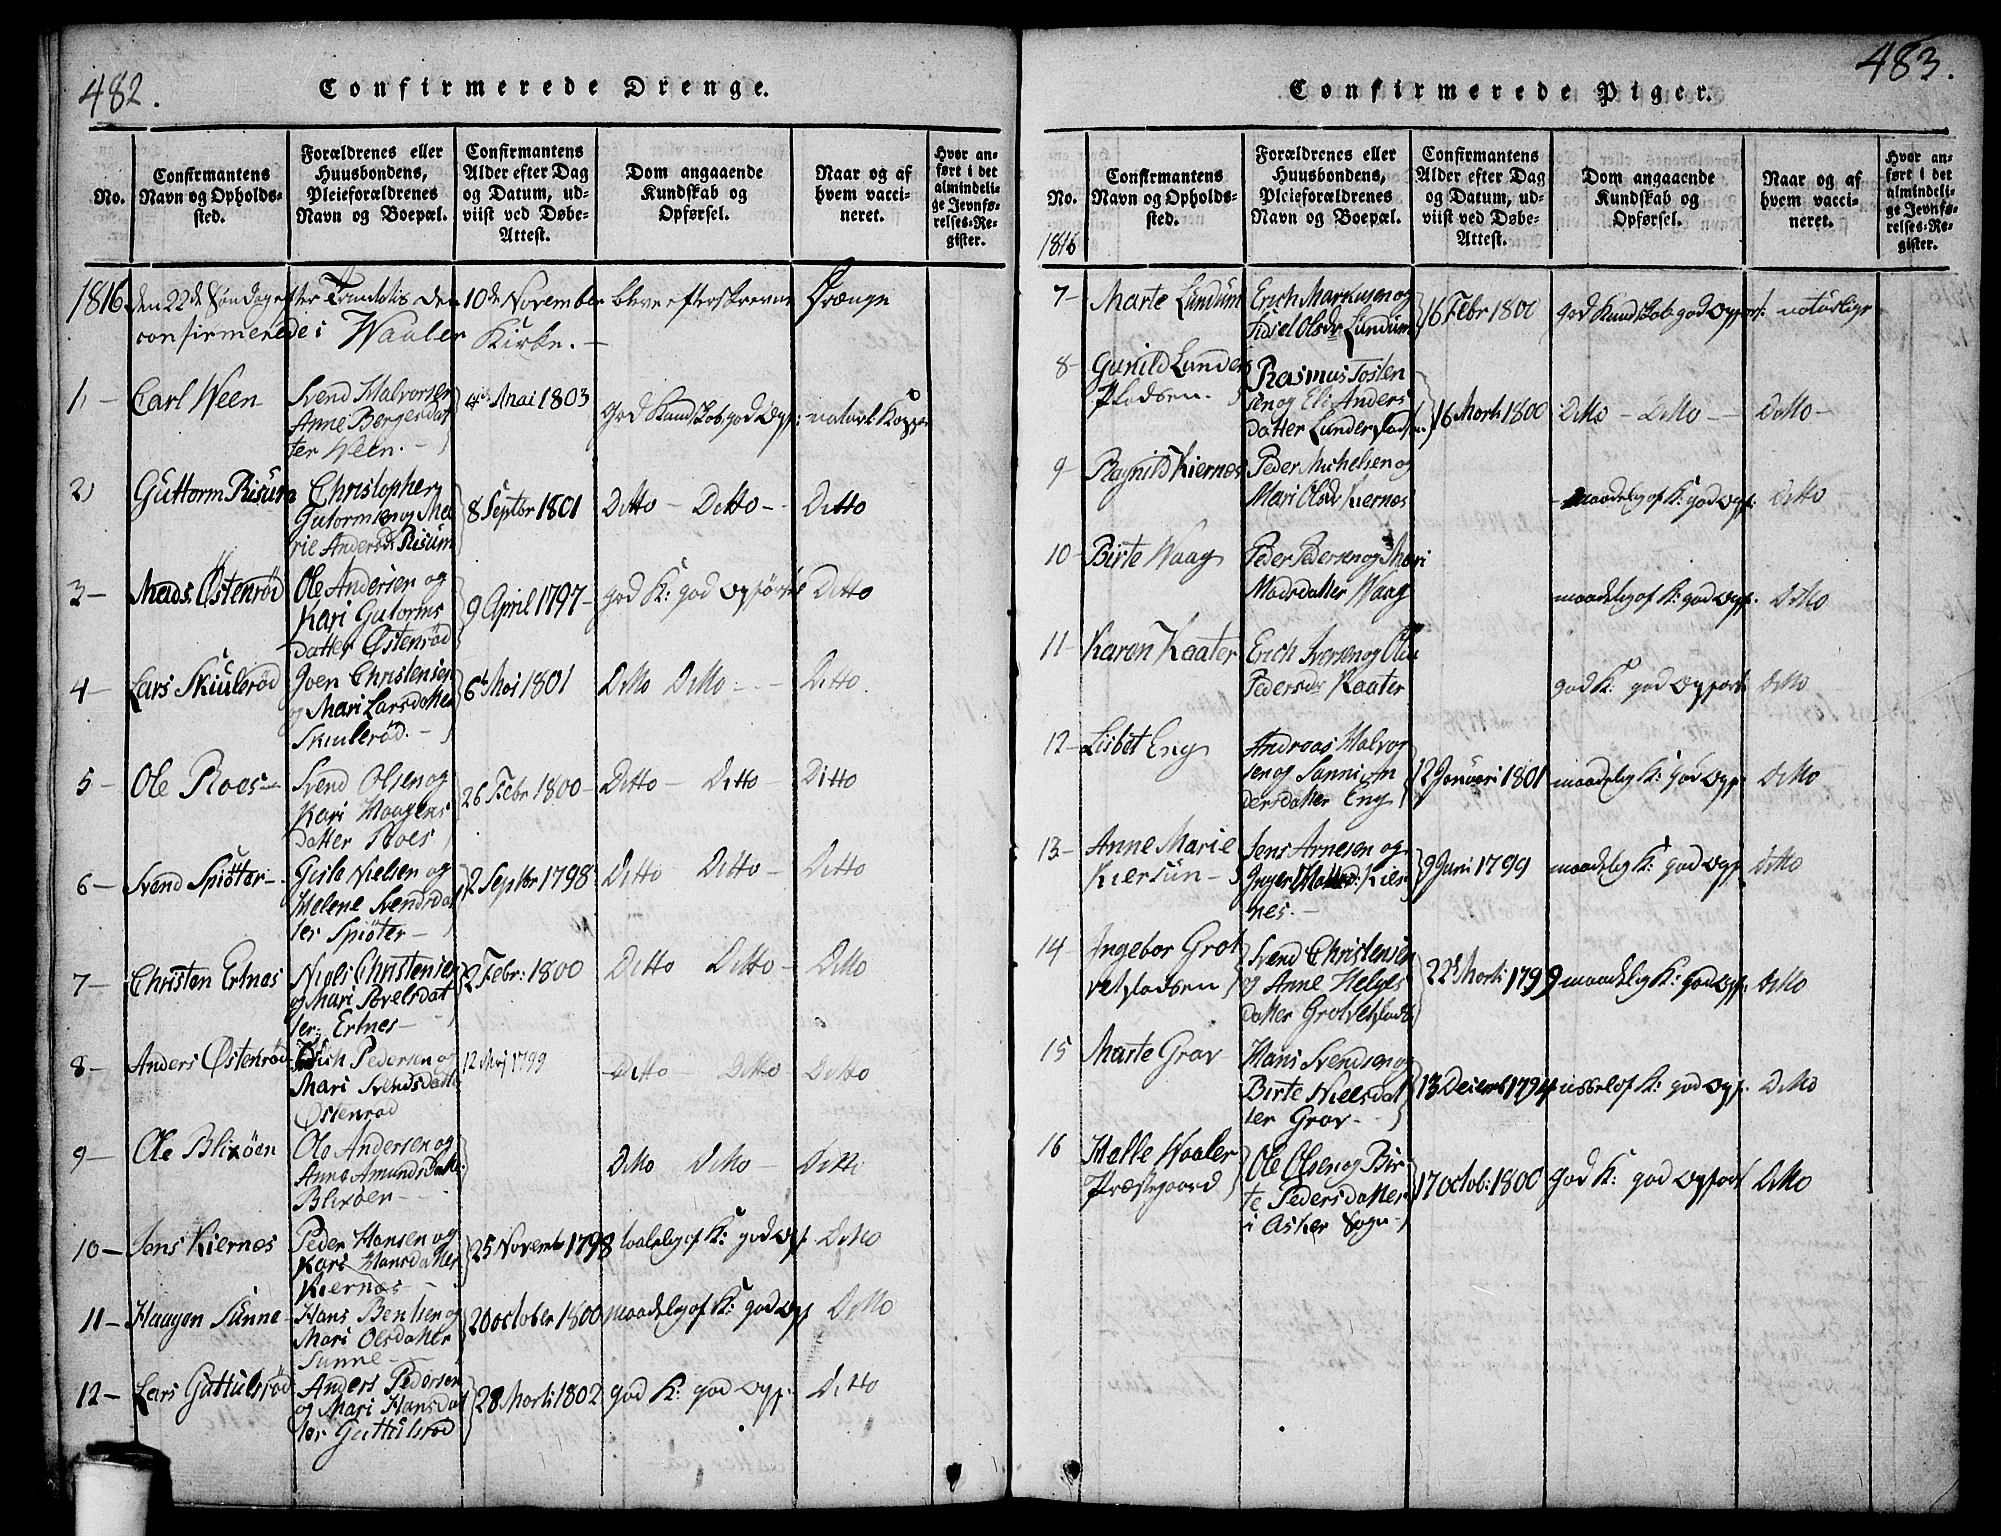 482.
Confirmerede Drenge.
No.
Confirmantens
Navn og Opholds-
sted.
Forældrenes eller
Huusbondens,
Pleieforældrenes
Navn og Boepæl.
Confirmantens
Alder efter Dag
og Datum, ud-
viist ved Døbe-
Attest.
Dom angaaende
Kundskab og
Opførsel.
Naar og af
hvem vacci-
neret.
Hvor an-
ført i det
almindeli-
ge Jevnfø-
relses-Re-
gister.
1816 den 22de Søndag efter Trinitatis den 10de November bleve efterskrevne Drænge
confirmerede i Waaler Kirke. —
1, — Carl Ween
Svend Halvorsen
Anne Bergesdat
ter Ween. —
4de Mai 1803
God Kundskab, god Opf: naturl. Kopper
2) Guttorm Risum
Christopher
Gutormsen og Ma
rie Andersdr Risum
8 Septbr 1801
Ditto — Ditto — Ditto
3 — Mads Østenrød
Ole Andersen og
Kari Gutorms
datter Østenrød
9 April 1797 —
god K: god Opførsel Ditto
4 — Lars Skiulerød
Joen Christensen
og Mari Larsdatter
Skiulerød. —
6t Mai 1801
Ditto Ditto — Ditto
5 — Ole Roes —
Svend Olsen og
Kari Haagens
datter Roes
26 Febr 1800 —
Ditto — Ditto — Ditto
6 — Svend Spiøter —
Gisle Nielsen og
Helene Svendsdat
ter Spiøter —
2 Septbr 1798
Ditto Ditto — Ditto
7 — Christen Ertnes
Niels Christensen
og Mari Povelsdat
ter Ertnes —
2 Febr: 1800
Ditto Ditto — Ditto
8 — Anders Østenrød
Erich Pedersen og
Mari Svendsdatter
Østenrød
12 Maj 1799
Ditto — Ditto Ditto
9 — Ole Blixøen
Ole Andersen og
Anne Amundsdatter
Blixøen —
Ditto Ditto — Ditto
10 — Jens Kiernes
Peder Hansen og
Kari Hansdatter
Kiernes —
25 Novemb 1798
taalelig af K: god Opf. Ditto
11 — Haagen Sunne —
Hans Bentsen og
Mari Olsdatter
Sunne —
20 october 1800
maadelig af K: god Opf Ditto
12 — Lars Guttulsrød
Anders Pedersen
og Mari Hansdat
ter Guttulsrød
28 Marti 1802
god K: god Opf. Ditto
483.
Confirmerede Piger.
No.
Confirmantens
Navn og Opholds-
sted.
Forældrenes eller
Huusbondens,
Pleieforældrenes
Navn og Boepæl.
Confirmantens
Alder efter Dag
og Datum, ud-
viist ved Døbe-
Attest.
Dom angaaende
Kundskab og
Opførsel.
Naar og af
hvem vacci-
neret.
Hvor an-
ført i det
almindeli-
ge Jevnfø-
relses-Re-
gister.
1816
7 — Marte Lundum
Erich Markusen og
Sidsel Olsdr Lundum
16 Febr 1800
god Kundskab god Opført: naturlige
8 — Gunild Lunder
Pladsen.
Rasmus Tosten
sen og Eli Anders
datter Lunderplads
16 Marti 1800
Ditto — Ditto — Ditto —
9 — Ragnild Kiernes
Peder Michelsen og
Mari Olsdr Kiernes
maadelig af K: god Opf: Ditto
10 — Birte Waag
Peder Pedersen og Mari
Madsdatter Waag
maadelig af K: god Opf. Ditto
11 — Karen Kaater
Erich Iversen og Olea
Pedersdr Kaater
god K: god Opførs: Ditto
12 — Lisbet Eng
Andreas Halvor
sen og Sanni An
dersdatter Eng
12 Januari 1801
maadelig K: god Opf. Ditto
13. — Anne Marie
Kiersun —
Jens Arnesen og
Inger Kier
nes. —
9 Juni 1799
maadelig K: god Opf Ditto
14 — Ingebor Grot
vetpladsen
Svend Christensen
og Anne Helges
datter Grotvetplads
22de Marti 1799
maadelig K: god Opf: Ditto
15 Marte Grav —
Hans Svendsen og
Birte Nielsdat
ter Grav —
13 Decemb 1794
ussel af K: god Opf. Ditto
16 Halle Waaler
Præstegaard
Ole Olsen og Bir
te Pedersdatter
i Asker Sogn —
17 octob: 1800
god K: god Opførs Ditto